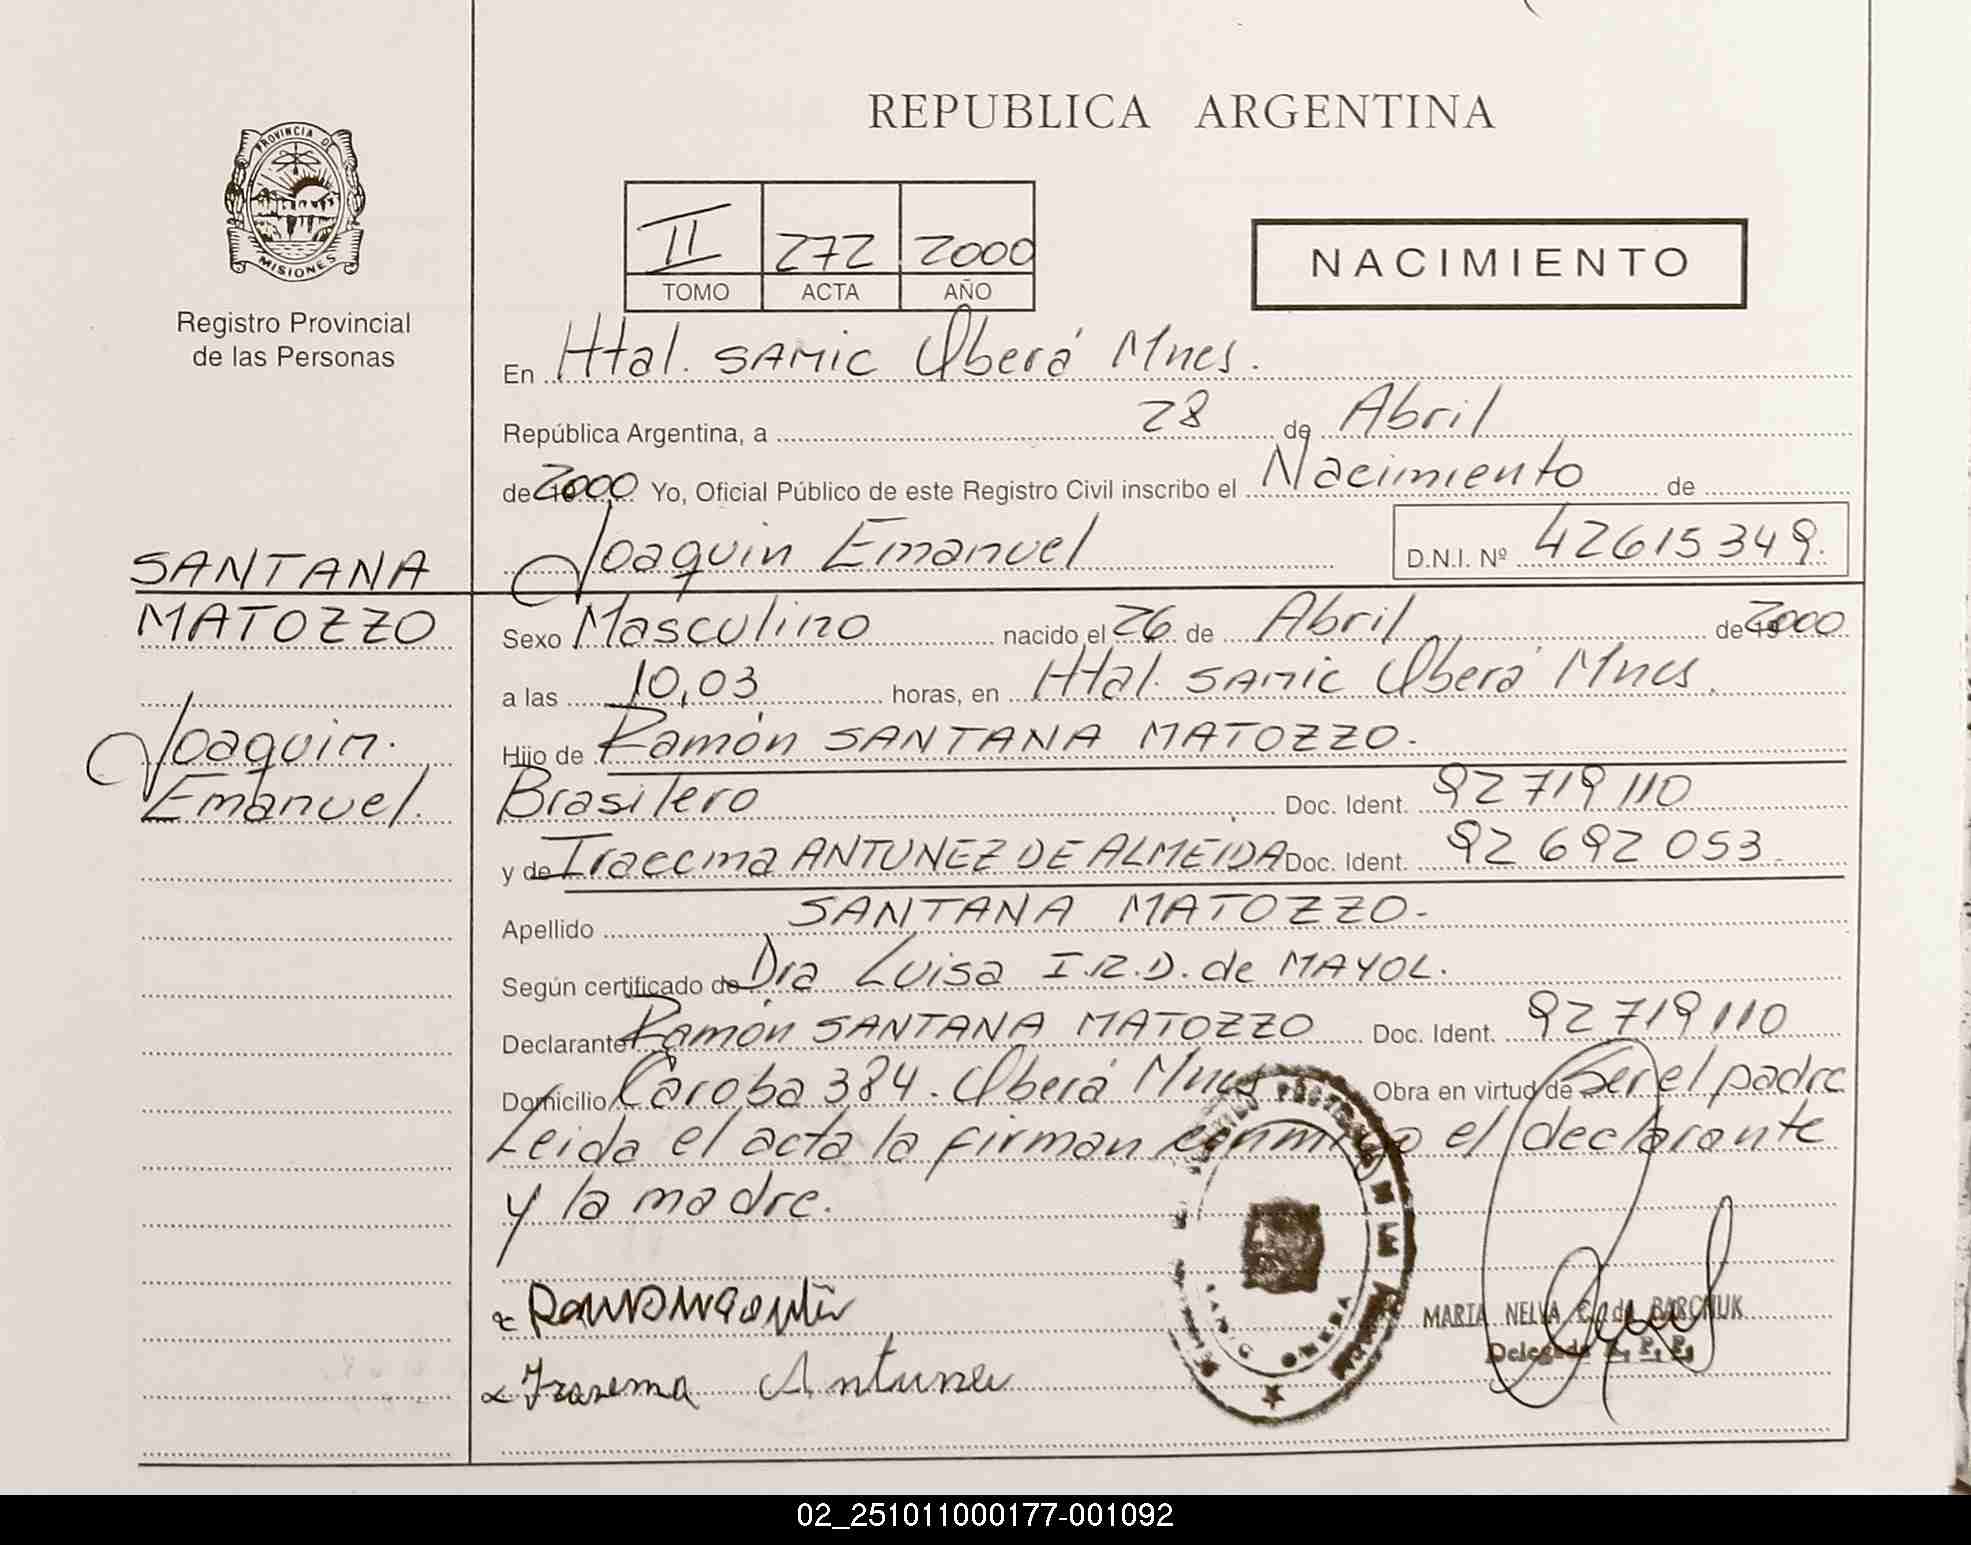 REPUBLICA ARGENTINA
PROVINCIA DE
MISIONES
Registro Provincial
de las Personas
II 272 2000
TOMO ACTA AÑO
NACIMIENTO
En Htal. SAMIC Oberá Mnes.
República Argentina, a 28 de Abril
de 2000 Yo, Oficial Público de este Registro Civil inscribo el Nacimiento de
Joaquin Emanuel D.N.I. Nº 42615349.
SANTANA
MATOZZO
Joaquin.
Emanuel.
Sexo Masculino nacido el 26 de Abril de 2000
a las 10,03 horas, en Htal. SAMIC Oberá Mnes.
Hijo de Ramón SANTANA MATOZZO.
Brasilero Doc. Ident. 92 719 110
y de Iracema ANTUNEZ DE ALMEIDA Doc. Ident. 92 692 053.
Apellido SANTANA MATOZZO.
Según certificado de Dra Luisa I.R.D. de MAYOL.
Declarante Ramón SANTANA MATOZZO Doc. Ident. 92 719 110
Domicilio Caroba 384. Oberá Mnes Obra en virtud de Ser el padre
Leida el acta la firman conmigo el declarante
y la madre.
MARIA NELVA C. de BARCHUK
Delegada R. P. P.
Irasema Antunes
02_251011000177-001092